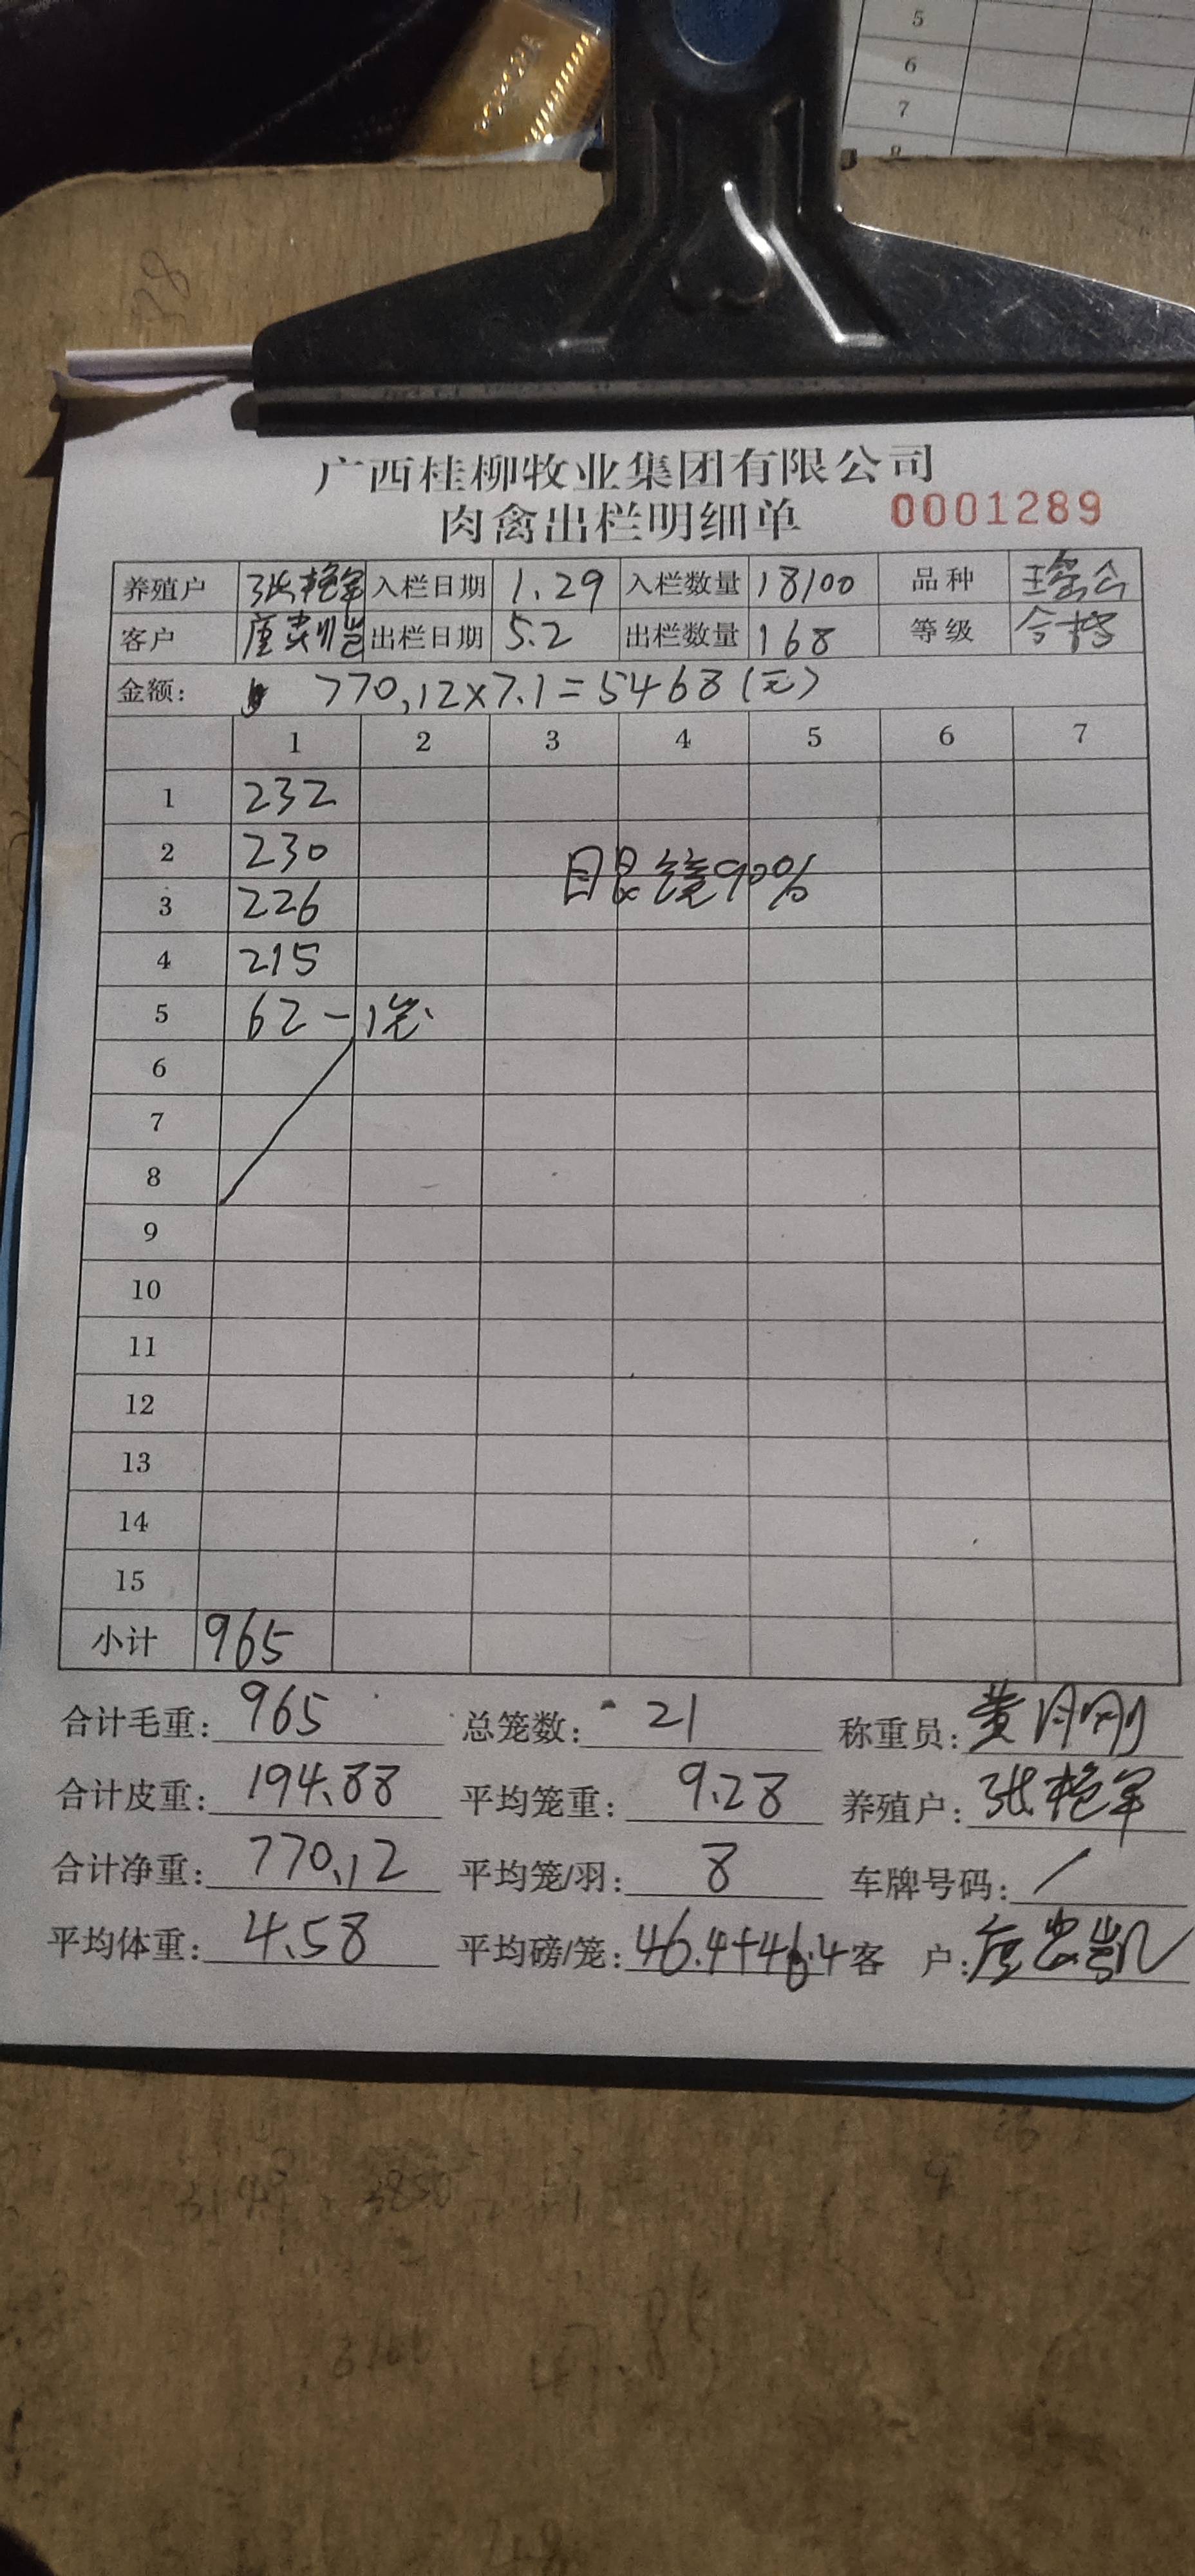 5
6
7
8
广西桂柳牧业集团有限公司
肉禽出栏明细单 0001289
养殖户 张艳军 入栏日期 1.29 入栏数量 18100 品种 瑶公
客户 出栏日期 5.2 出栏数量 168 等级 合格
金额: 770.12×7.1=5468(元)
1 2 3 4 5 6 7
1 232
2 230
3 226 90%
4 215
5 62-1笼
6
7
8
9
10
11
12
13
14
15
小计 965
合计毛重: 965 总笼数: 21 称重员: 黄月刚
合计皮重: 194.88 平均笼重: 9.28 养殖户: 张艳军
合计净重: 770.12 平均笼/羽: 8 车牌号码: /
平均体重: 4.58 平均磅/笼: 46.4+46.4 客 户: